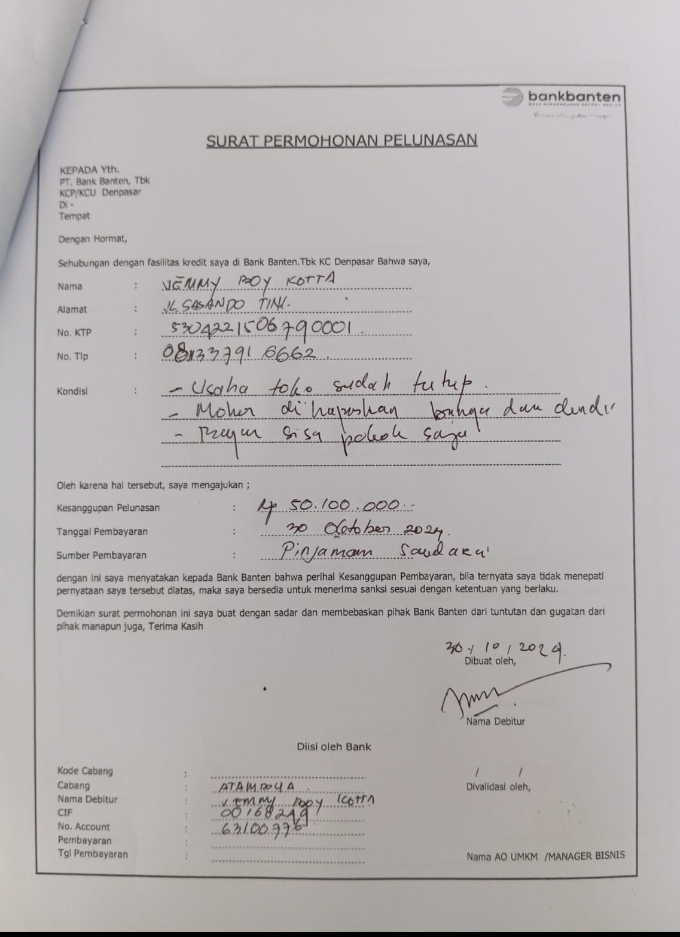 bankbanten
SURAT PERMOHONAN PELUNASAN
KEPADA Yth.
PT. Bank Banten, Tbk
KCP/KCU Denpasar
Di -
Tempat
Dengan Hormat,
Sehubungan dengan fasilitas kredit saya di Bank Banten.Tbk KC Denpasar Bahwa saya,
Nama : JEMMY ROY KOTTA
Alamat : JL SASANDO
No. KTP : 5304221506790001
No. Tlp :
Kondisi : - Usaha toko sudah tutup.
- Mohon di hapuskan bunga dan denda
- sisa pokok saya
Oleh karena hal tersebut, saya mengajukan ;
Kesanggupan Pelunasan : Rp 50.100.000
Tanggal Pembayaran : 30 Oktober 2024.
Sumber Pembayaran : Pinjaman Saudara
dengan ini saya menyatakan kepada Bank Banten bahwa perihal Kesanggupan Pembayaran, bila ternyata saya tidak menepati
pernyataan saya tersebut diatas, maka saya bersedia untuk menerima sanksi sesuai dengan ketentuan yang berlaku.
Demikian surat permohonan ini saya buat dengan sadar dan membebaskan pihak Bank Banten dari tuntutan dan gugatan dari
pihak manapun juga, Terima Kasih
30 / 10 / 2024.
Dibuat oleh,
Nama Debitur
Diisi oleh Bank
Kode Cabang :
/ /
Cabang : ATAMBUA
Divalidasi oleh,
Nama Debitur : JEMMY ROY KOTTA
CIF : 00168249
No. Account : 63100776
Pembayaran :
Tgl Pembayaran :
Nama AO UMKM /MANAGER BISNIS